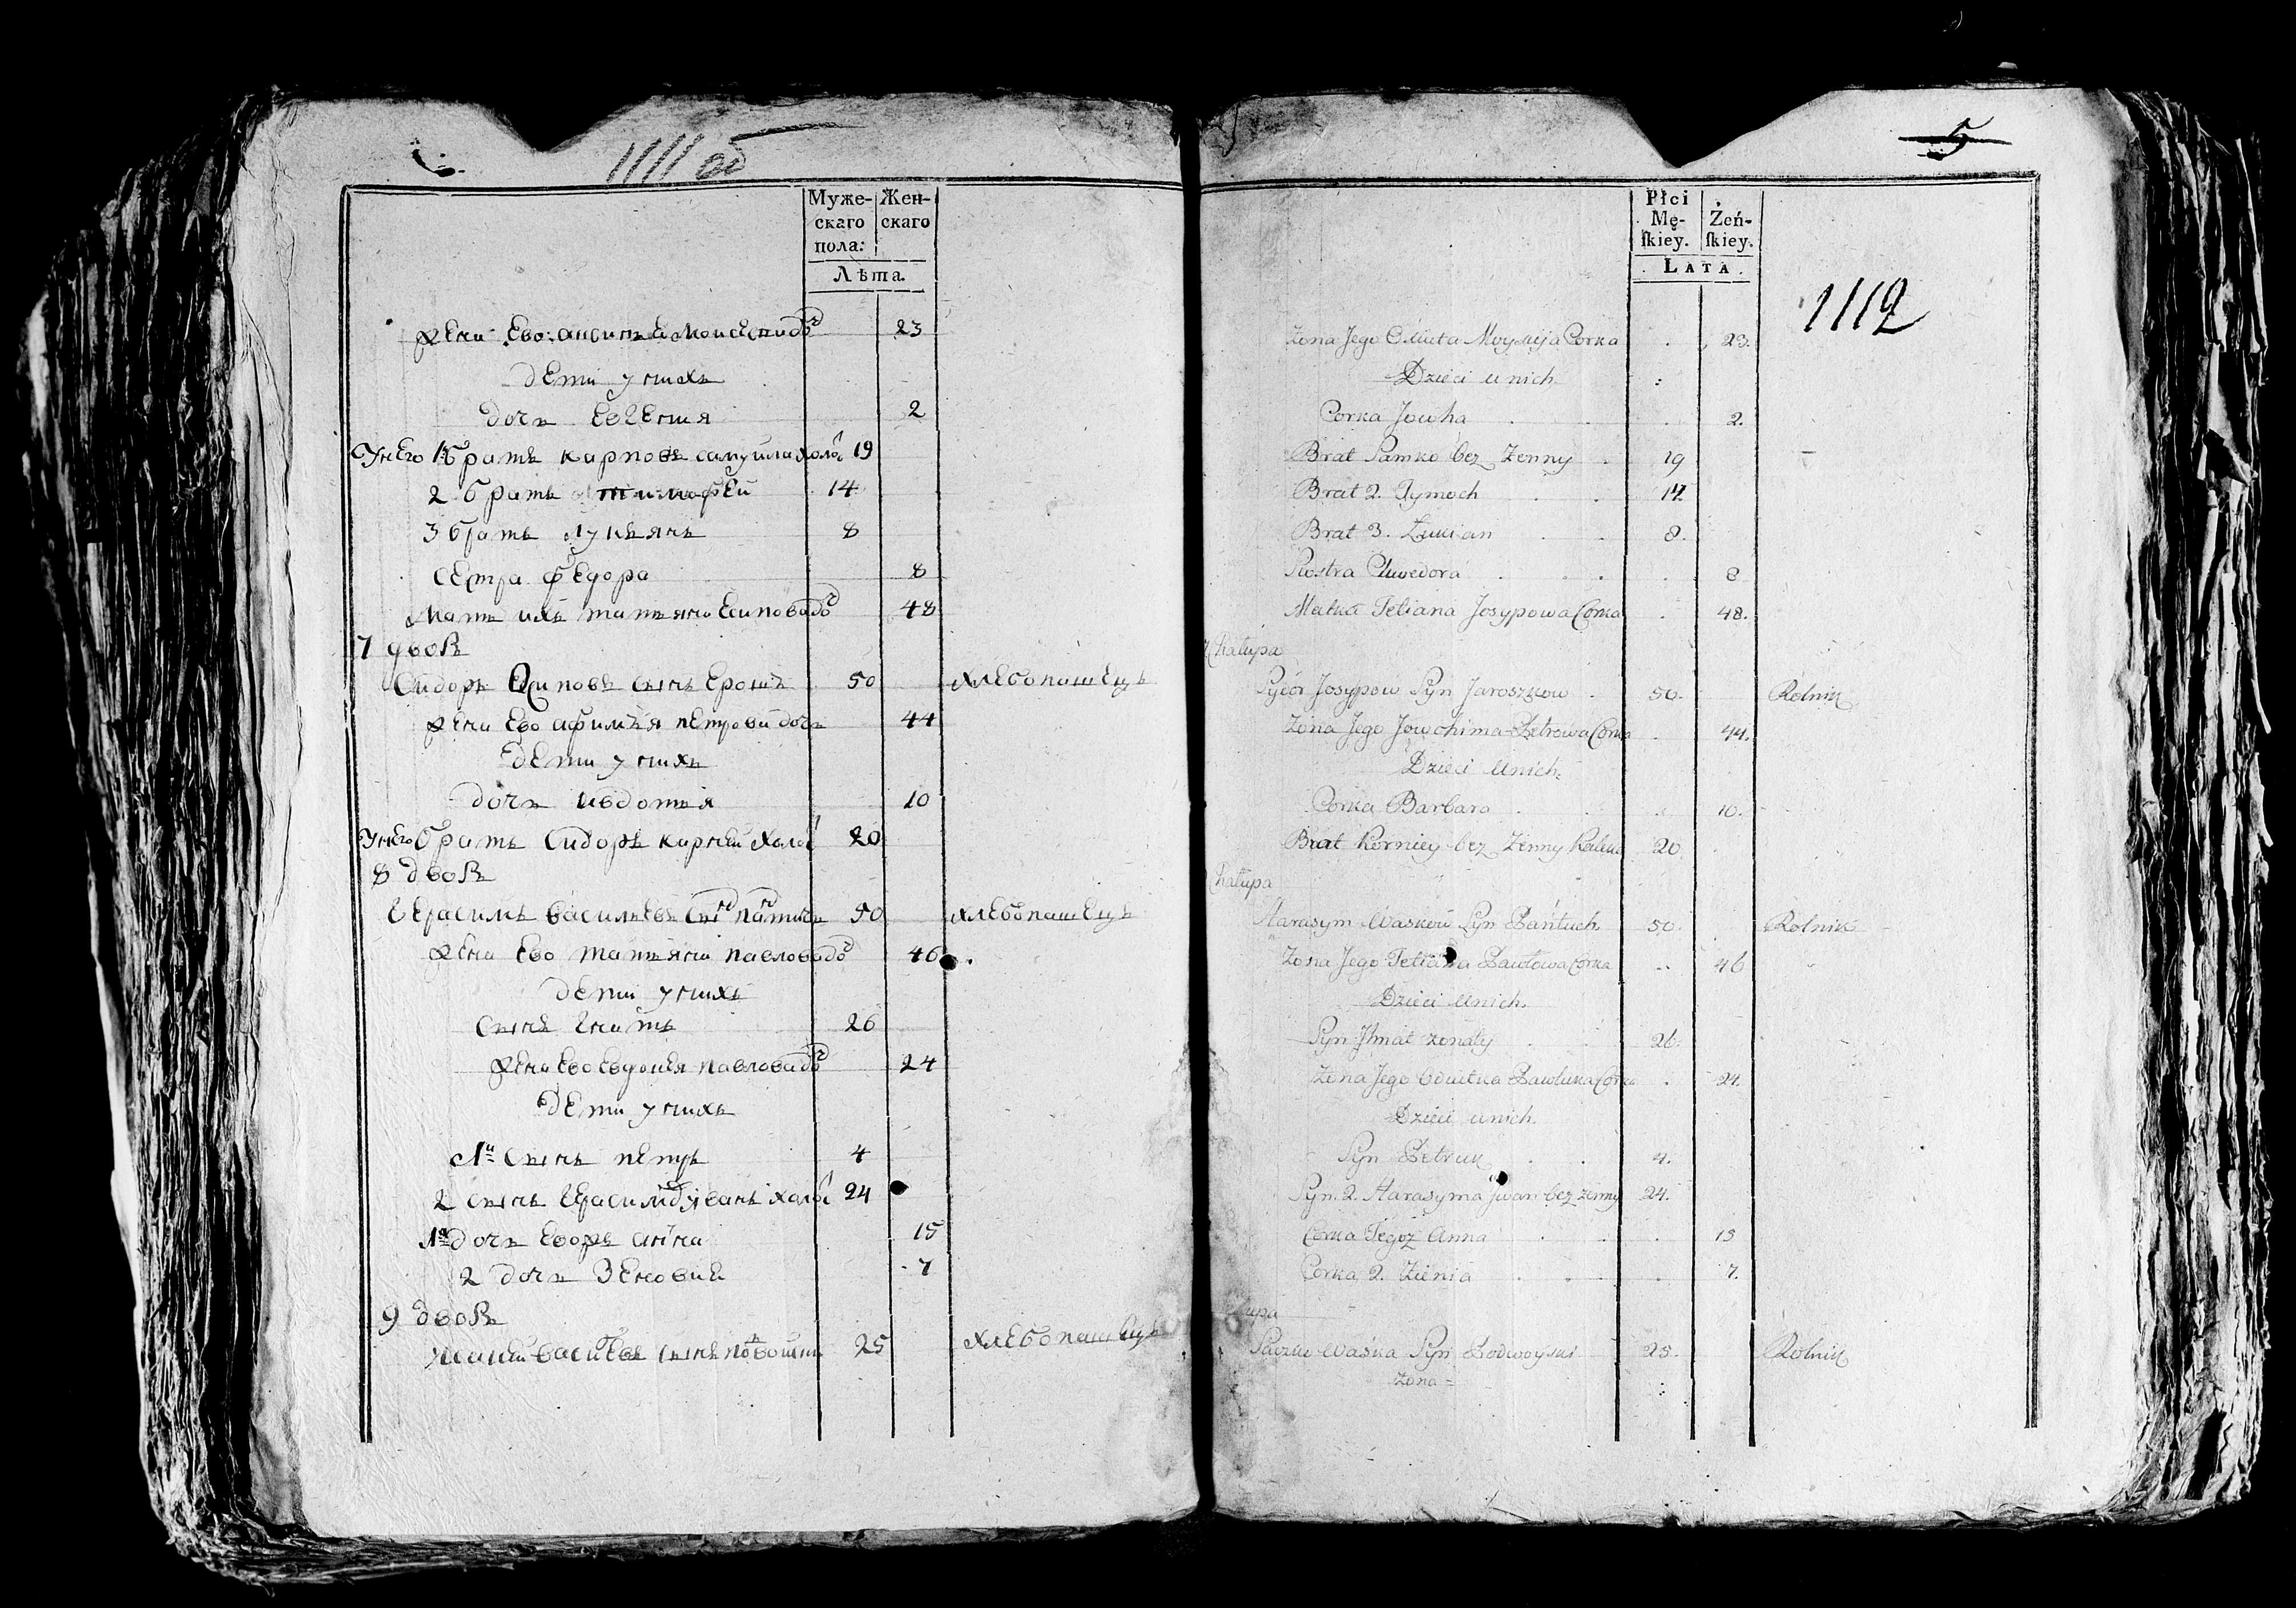 1111 об
Муже-
скаго
пола:
Жен-
скаго
Лѣта.
жена Ево
моисеива доч 23
дети у нихъ
дочь Евгения 2
У него 1й братъ карповъ самуила холос 19
2 братъ тимофей 14
3 братъ лукьянъ 8
сестра федора 8
мать ихъ татьяна Есипова доч 48
7 дворъ
Сидоръ Есиповъ сынъ Ерошъ 50 хлебопашецъ
жена Ево афимья петрова дочь 44
дети у нихъ
дочь 10
У него братъ Сидоръ карней холос 20
8 дворъ
Герасимъ васильевъ сынъ 50 хлебопашецъ
жена Ево татьяна павлова доч 46
дети у нихъ
сынъ Игнатъ 26
жена Ево павлова доч 24
дети у нихъ
1й сынъ петръ 4
2 сынъ Герасима иванъ холос 24
1я дочь Евожъ анна 15
2 дочь 7
9 дворъ
сынъ 25 хлебопашецъ
5
Płci
Mę-
ſkiey.
Żeń-
ſkiey.
LATA.
1112
Zona Jego Corka 23.
Dzieci u nich
Corka Jowha 2.
Brat Samko bez Zenny 19
Brat 2. Tymoch 14
Brat 3. Łukian 8.
Siostra Chwedora 8
Matka Tetiana Josypowa Corka 48.
Chałupa
Josypow Syn Jaroszkow 50. Rolnik
Zona Jego Jowchima Petrowa Corka 44.
Dzieci unich.
Corka Barbara 10.
Brat Korniey bez Zenny Kaleka 20
Chałupa
Harasym Waskow Syn Pańtuch 50. Rolnik
Zona Jego Tetiana Pawłowa Corka 46
Dzieci unich.
Syn Ihnat zonaty 26.
Zona Jego Pawluka Corka 24.
Dzieci unich.
Syn Petruk 4.
Syn. 2. Harasyma Jwan bez zenny 24.
Corka Tegoz Anna 15
Corka 2. Zienia 7.
łupa
Waśka Syn Podwoyski 25. Rolnik
zona =